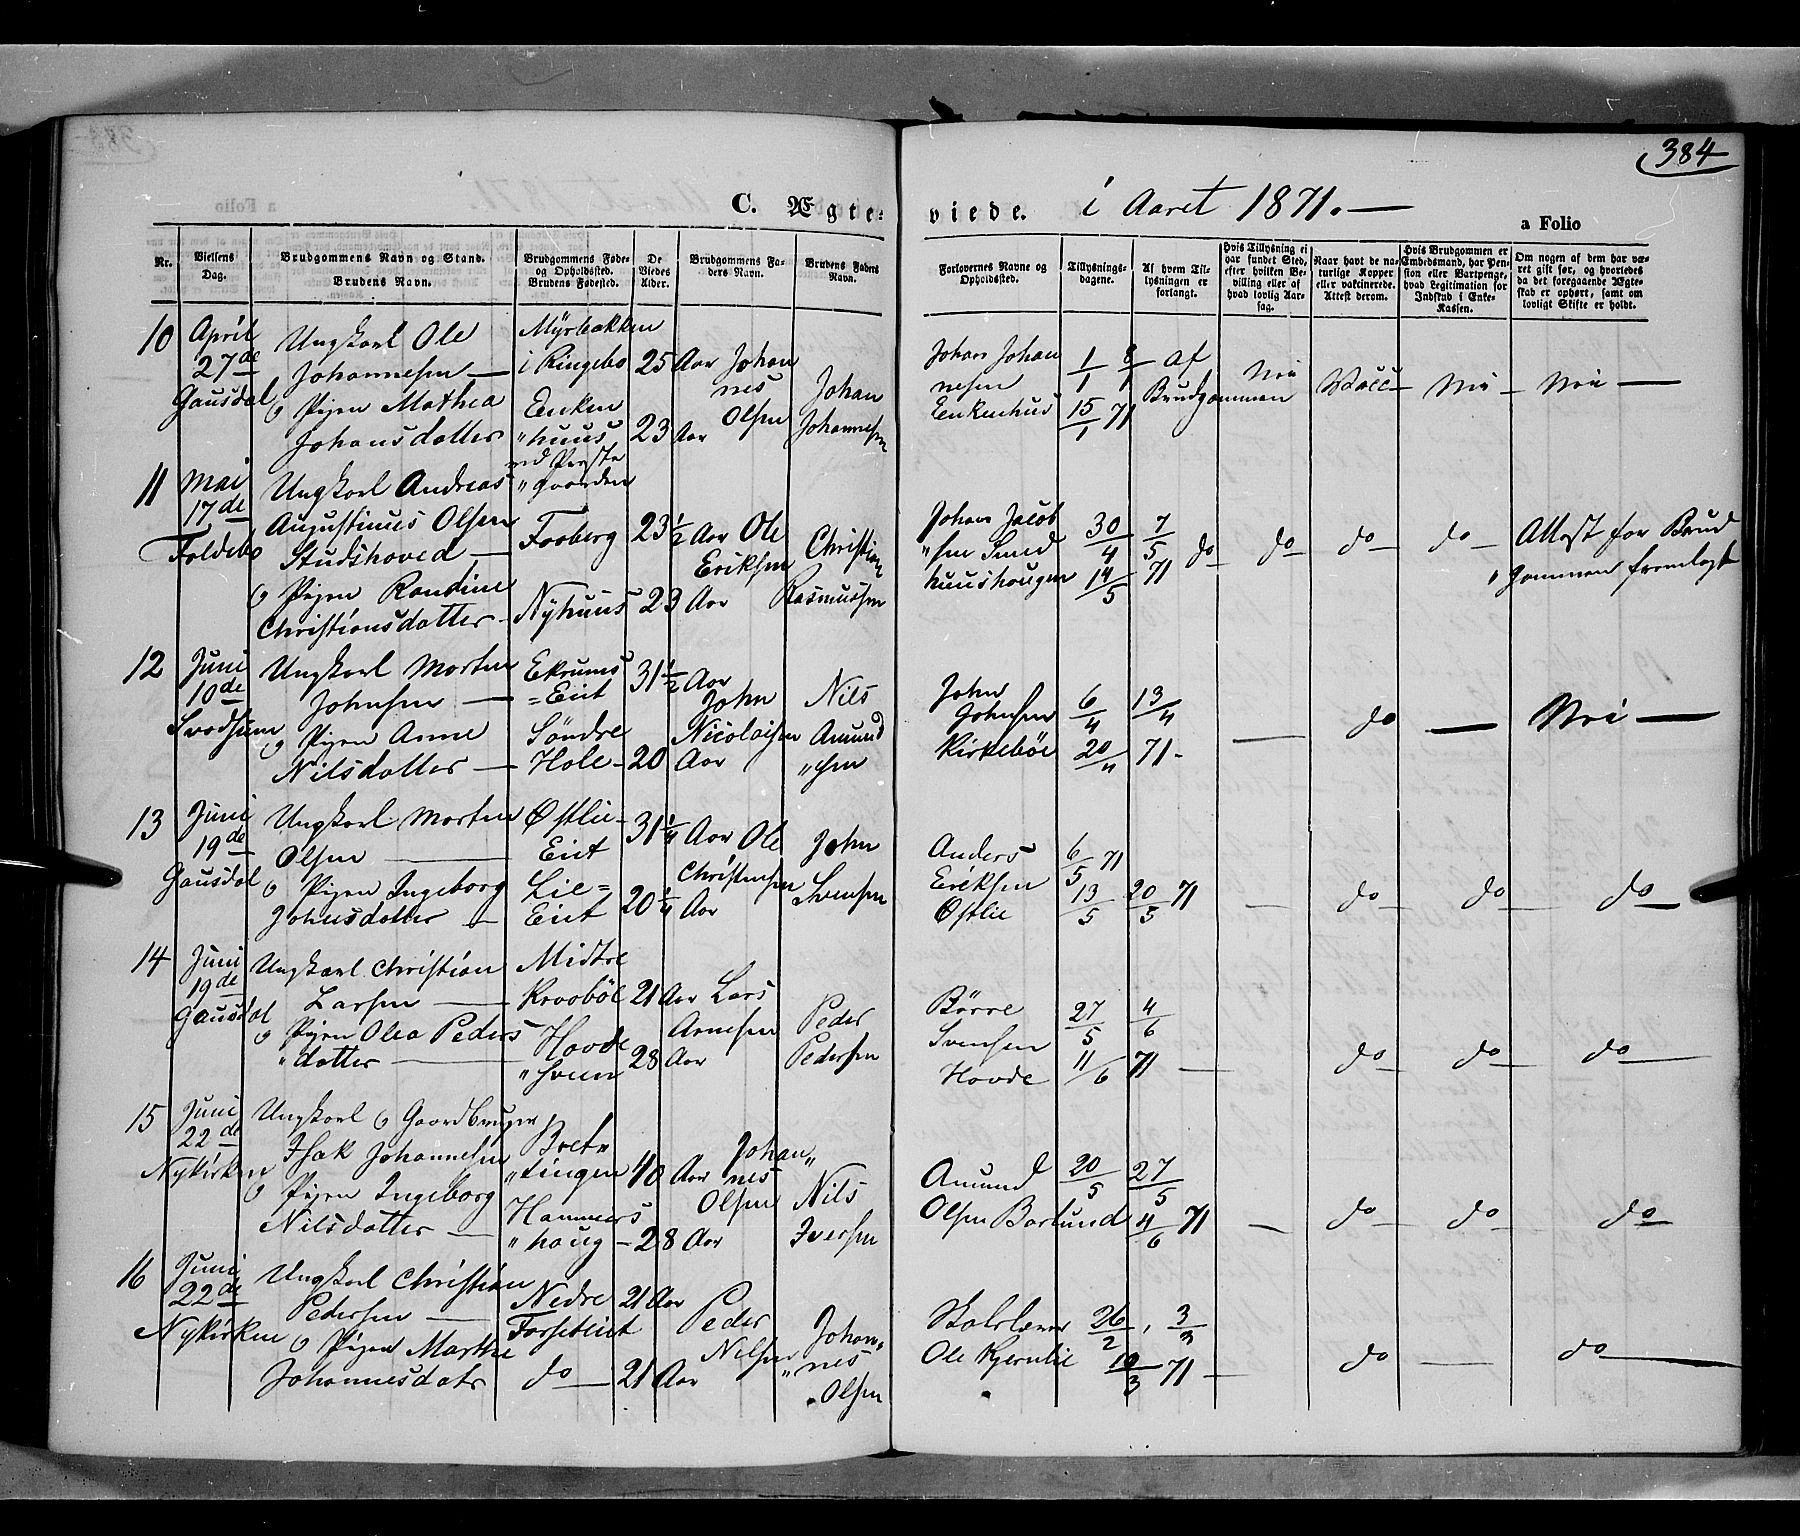 384
C. Ægte-viede. i Aaret 1871.
a Folio
Nr.
Vielsens Dag.
Brudgommens Navn og Stand.
Brudens Navn.
Brudgommens Føde- og Opholdssted.
Brudens Fødested.
De Viedes Alder.
Brudgommens Faders Navn.
Brudens Faders Navn.
Forlovernes Navne og Opholdssted.
Tillysningsdagene.
Af hvem Tillysningen er forlangt.
Hvis Tillysning ei har fundet Sted, efter hvilken Bevilling eller af hvad lovlig Aarsag.
Naar havt de naturlige Kopper eller vaktinerede. Attest derom.
Hvis Brudgommen er Embedsmand, har Pension eller Vartpenge, hvad Legitimation for Indskud i Enke-Kassen.
Om nogen af dem har været gift før, og hvorledes da det foregaaende Ægteskab er ophørt, samt om lovligt Skifte er holdt.
10
April
27de
Gausdal
Ungkarl Ole
Johannesen —
o Pigen Mathea
Johansdatter
Myrbakken
i Ringebo
Enken
"huus
25 Aar
23 Aar
Johan
nes
Olsen
Johan
Johannesen
Johan Johan
nesen
Enkenhus
1/1 8/1
15/1 71
af
Brudgommen
Nei
Vacc —
Nei —
Nei —
11
Mai
17de
Foldebo
Ungkarl Andreas
Augustinus Olsen
Studshoved —
o Pigen Randine
Christiansdatter
"gaarden
Fooberg
Nyhuus
23 1/2 Aar
23 Aar
Ole
Eriksen
Christian
Rasmussen
Johan Jacob
"sen
huushougen
30/4 7/5
14/5 71
do
do
do
do
Attest for Brud
"gommen fremlagt
12
Juni
10de
Svodsum
Ungkarl Morten
Johnsen —
o Pigen Anne
Nilsdatter —
Ekrums
=Eiet
Søndre
Hole
31 1/2 Aar
20 Aar
John
Nicolaisen
Nils
Amund
"sen
John
Johnsen
Kirkebøe
6/4 13/4
20/4 71 -
—
do
—
Nei —
13
Juni
19de
Gausdal
Ungkarl Morten
Olsen —
o Pigen Ingeborg
Johnsdatter —
Østlie
Eiet
Lie=
Eiet
31 1/4 Aar
20 1/4 Aar
Ole
Christensen
John
Svensen
Anders
Eriksen
Østlie
6/5 71
13/5 20/5 71
—
do
do
do
14
Juni
19de
Gausdal
Ungkarl Christian
Larsen —
o Pigen Olea Peders
"datter —
Midtre
Kroobøl
Hovde
"sveen
21 Aar
28 Aar
Lars
Arnesen
Peder
Pedersen
Børre
Svensen
Hovde
27/5 4/6
11/6 71
—
do
do
do
15
Juni
22de
Nykirken
Ungkarl o Gaardbruger
Isak Johannesen
o Pigen Ingeborg
Nilsdatter —
Bret"
"tingen
Hammers
"haug
40 Aar
28 Aar
Johan"
nes
Olsen
Nils
Iversen
Amund
Olsen Barlund
20/5 27/5
4/6 71
—
do
do
do
16
Juni
22de
Nykirken
Ungkarl Christian
Pedersen —
o Pigen Marthe
Johannesdatr
Nedre
Forseteiet
do
21 Aar
21 Aar
Peder
Nilsen
Johan"
"nes
Olsen
Skolelærer
Ole Kjernlie
26/2, 3/3
10/3 71
—
do
—
do